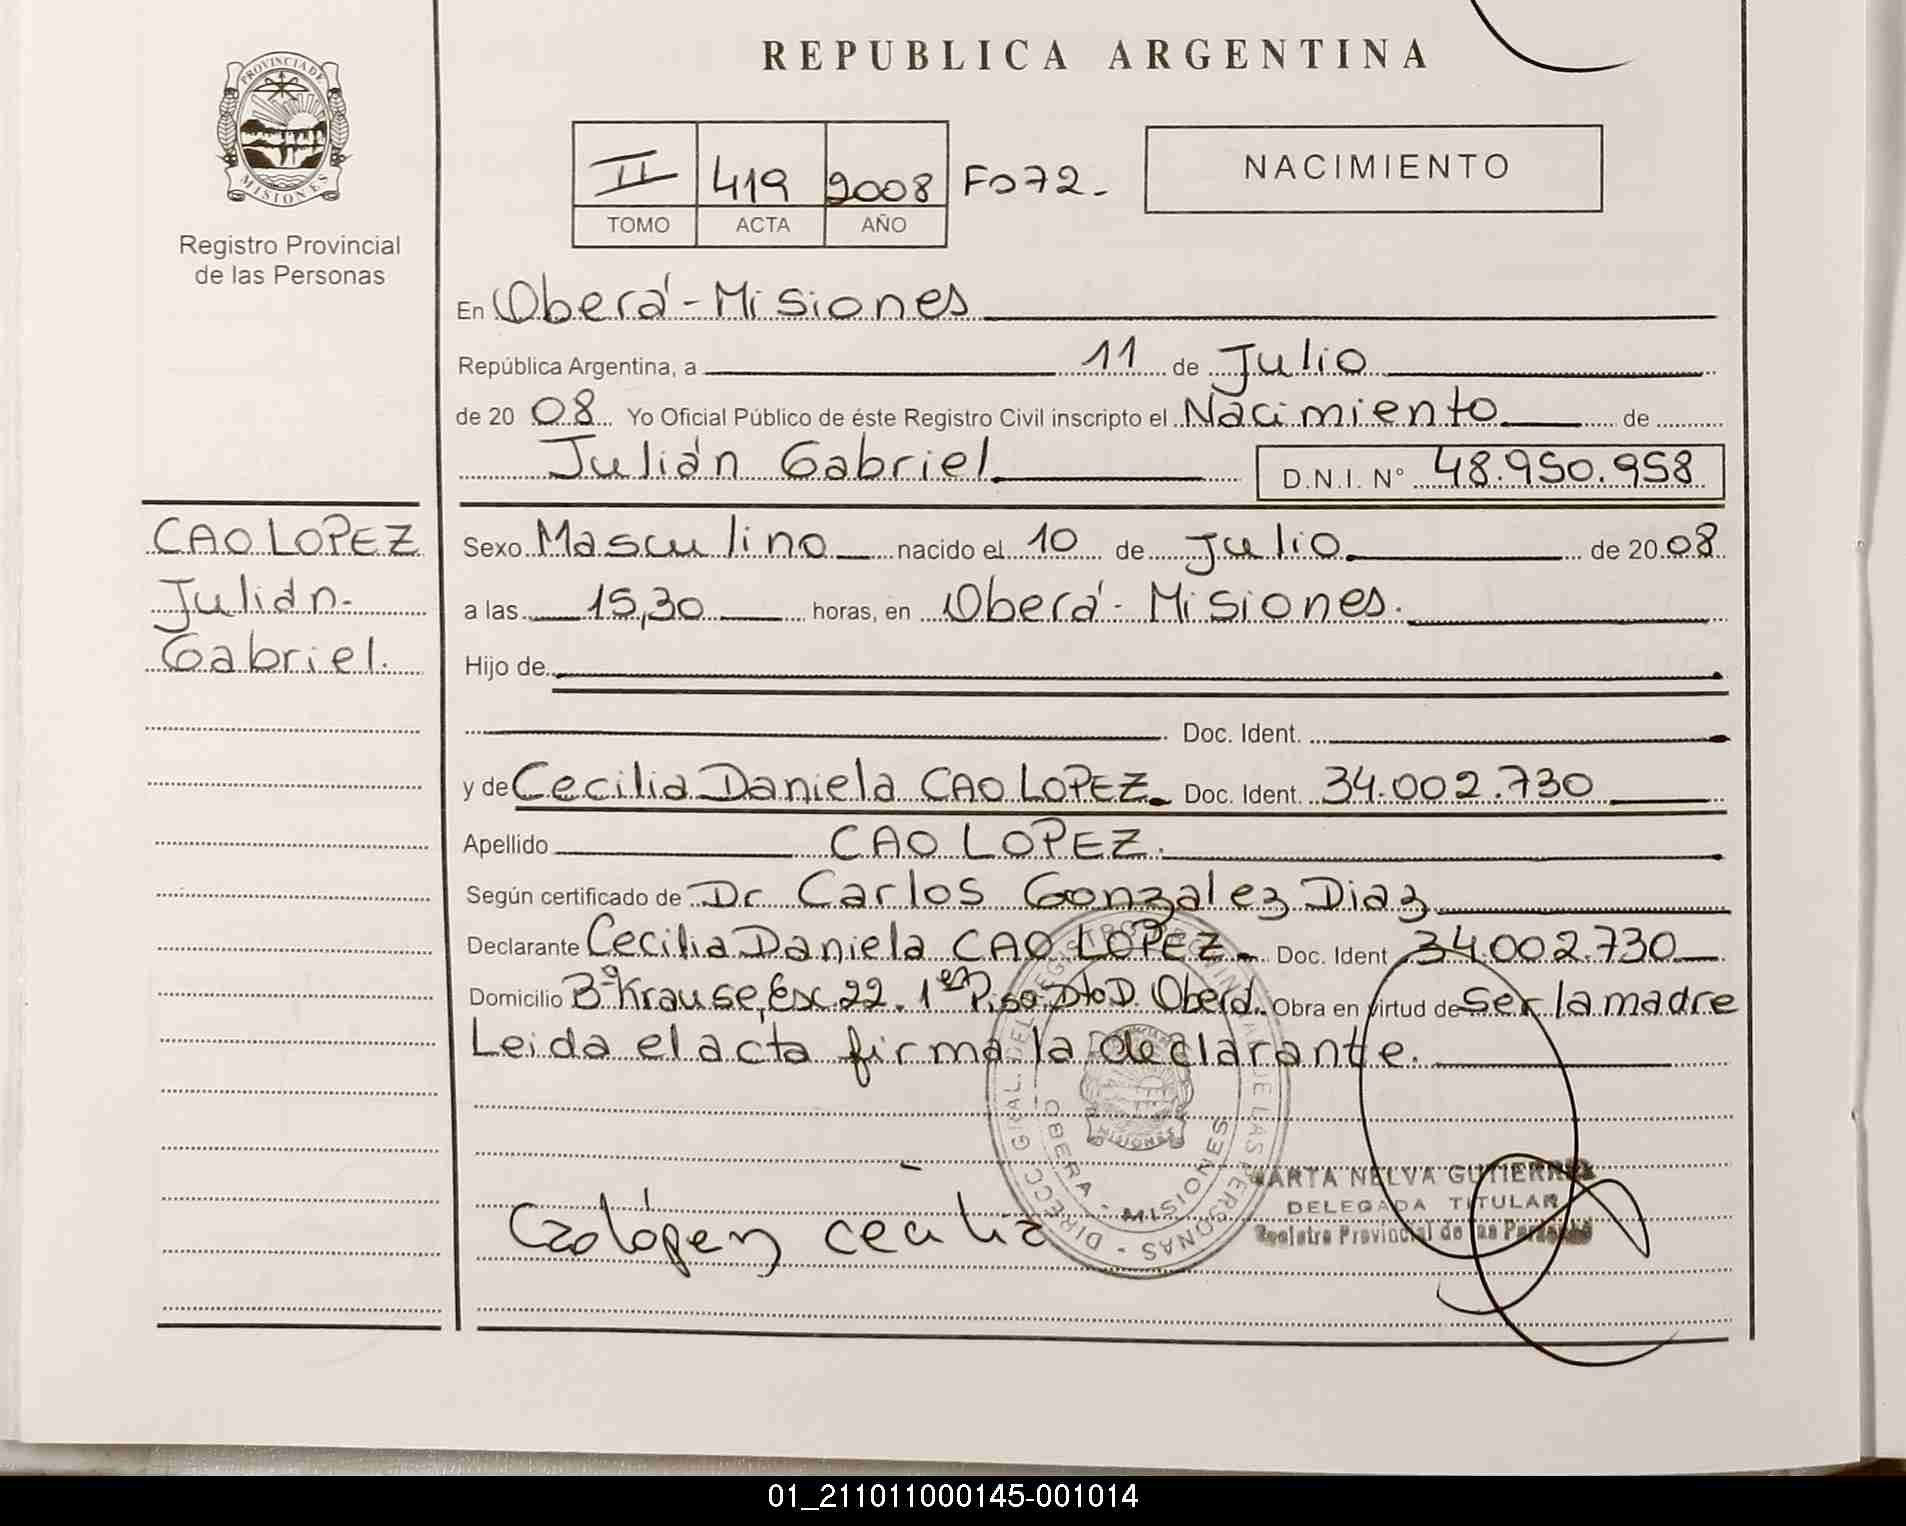 REPUBLICA ARGENTINA
PROVINCIA DE MISIONES
Registro Provincial
de las Personas
II 419 2008 Fo 72-
TOMO ACTA AÑO
NACIMIENTO
En Oberá - Misiones
República Argentina, a 11 de Julio
de 20 08 Yo Oficial Público de éste Registro Civil inscripto el Nacimiento de
Julián Gabriel D.N.I. N° 48.950.958
CAO LOPEZ
Julián
Gabriel.
Sexo Masculino nacido el 10 de Julio de 20 08
a las 15,30 horas, en Oberá - Misiones.
Hijo de
Doc. Ident.
y de Cecilia Daniela CAO LOPEZ. Doc. Ident. 34.002.730
Apellido CAO LOPEZ.
Según certificado de Dr Carlos Gonzalez Diaz
Declarante Cecilia Daniela CAO LOPEZ Doc. Ident 34.002.730
Domicilio B° Krause, Esc. 22. 1er Piso Dto D. Oberá. Obra en virtud de Ser la madre
Leida el acta firma la declarante.
DIRECC. GRAL. DEL REGISTRO PROVINCIAL DE LAS PERSONAS
OBERA - MISIONES
MISIONES
MARTA NELVA GUTIERREZ
DELEGADA TITULAR
Registro Provincial de las Personas
Cao lópez cecilia
01_211011000145-001014